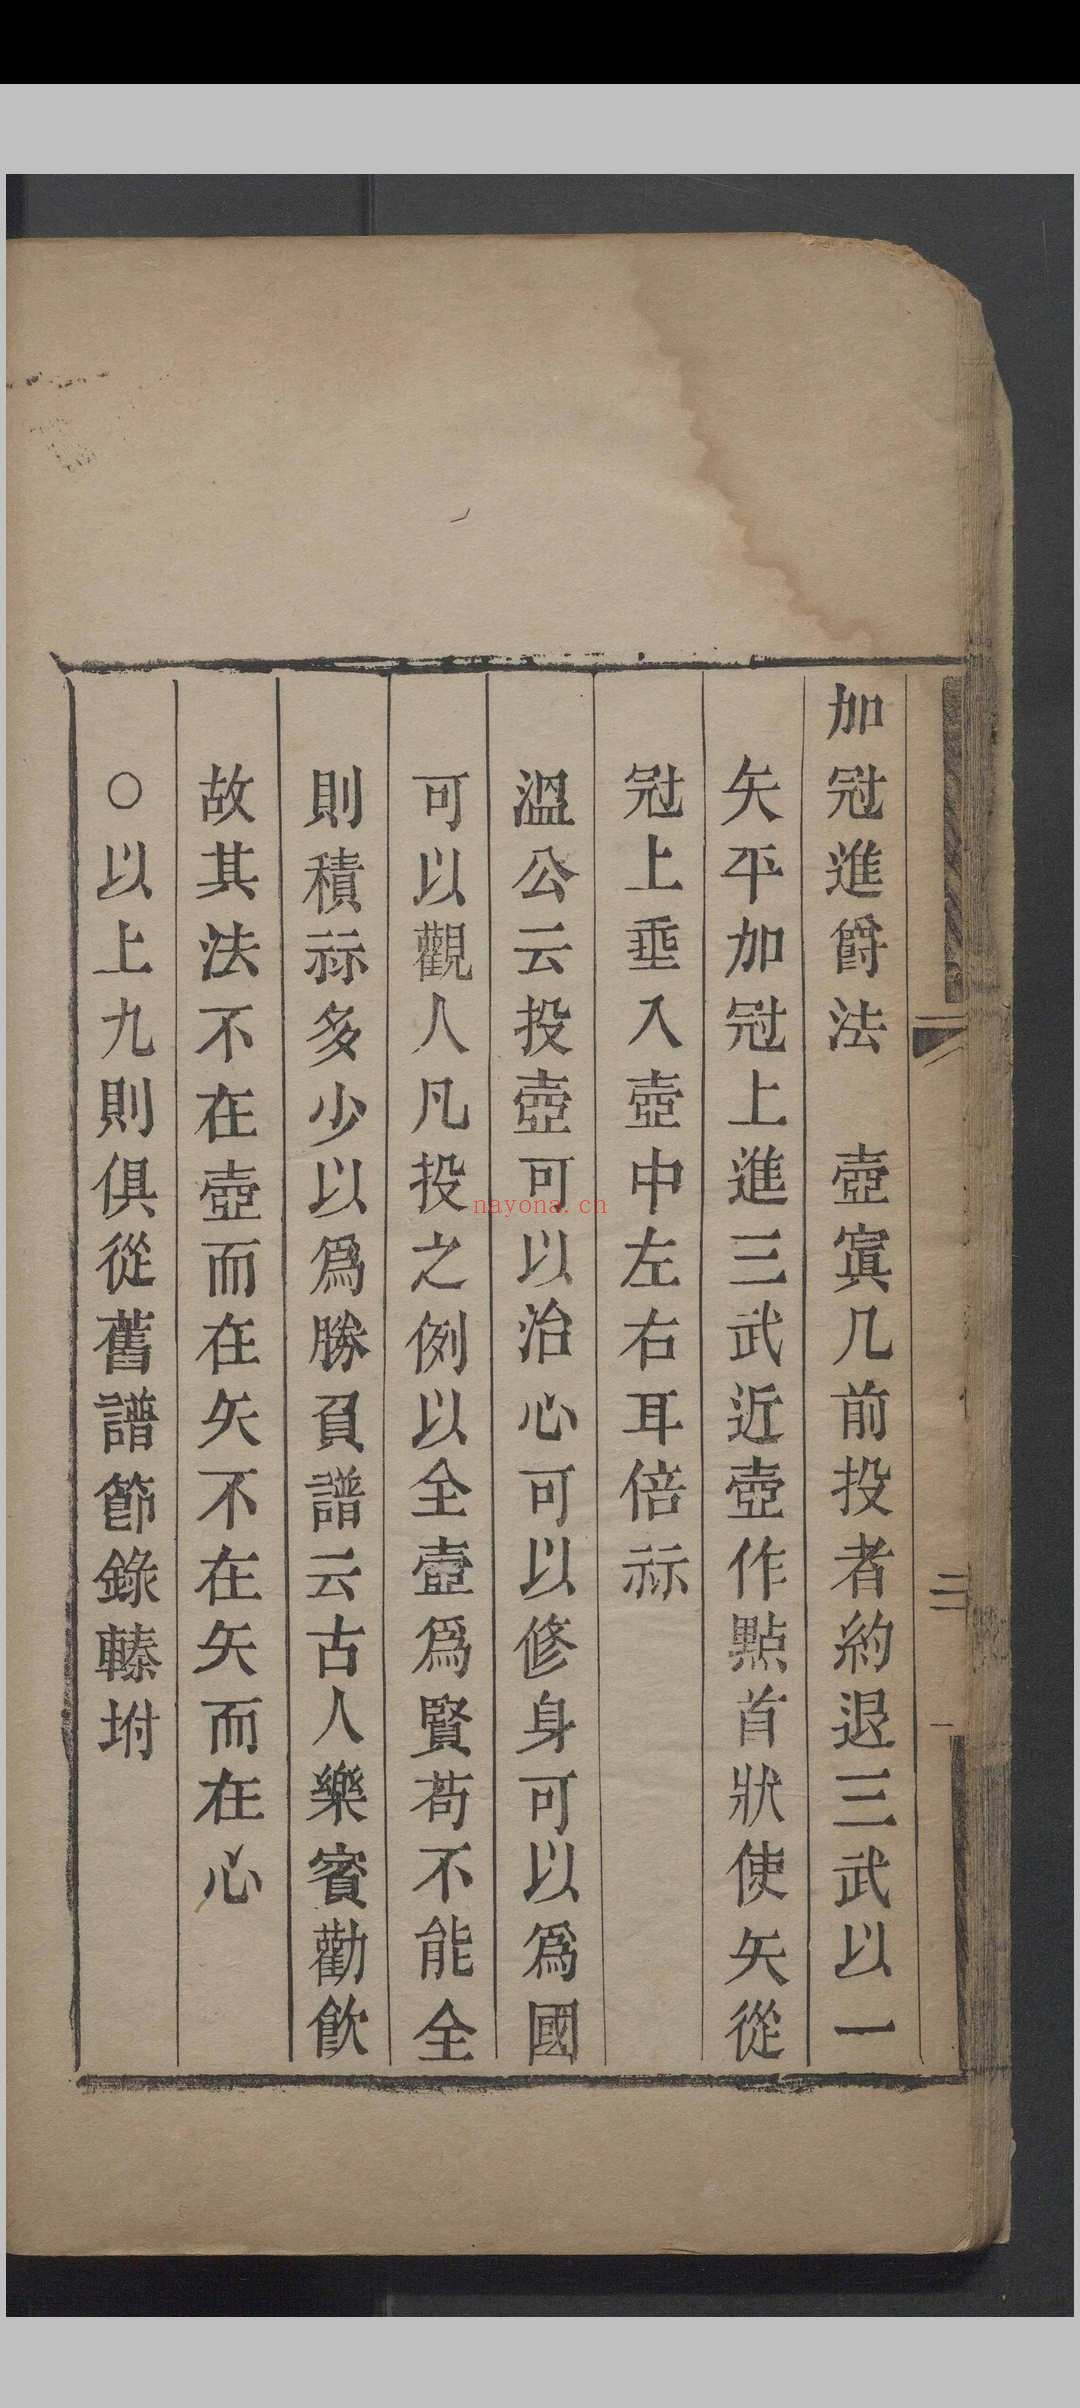 加冠進爵法　壺寘几前投者約退三武以一
矢平加冠上進三武近壺作點首狀使矢從
冠上垂入壺中左右耳倍祘
溫公云投壺可以治心可以修身可以爲國
可以觀人凡投之例以全壺爲賢苟不能全
則積祘多少以爲勝負譜云古人樂賓勸飲
故其法不在壺而在矢不在矢而在心
○以上九則俱從舊譜節錄轃坿
nayona.cn